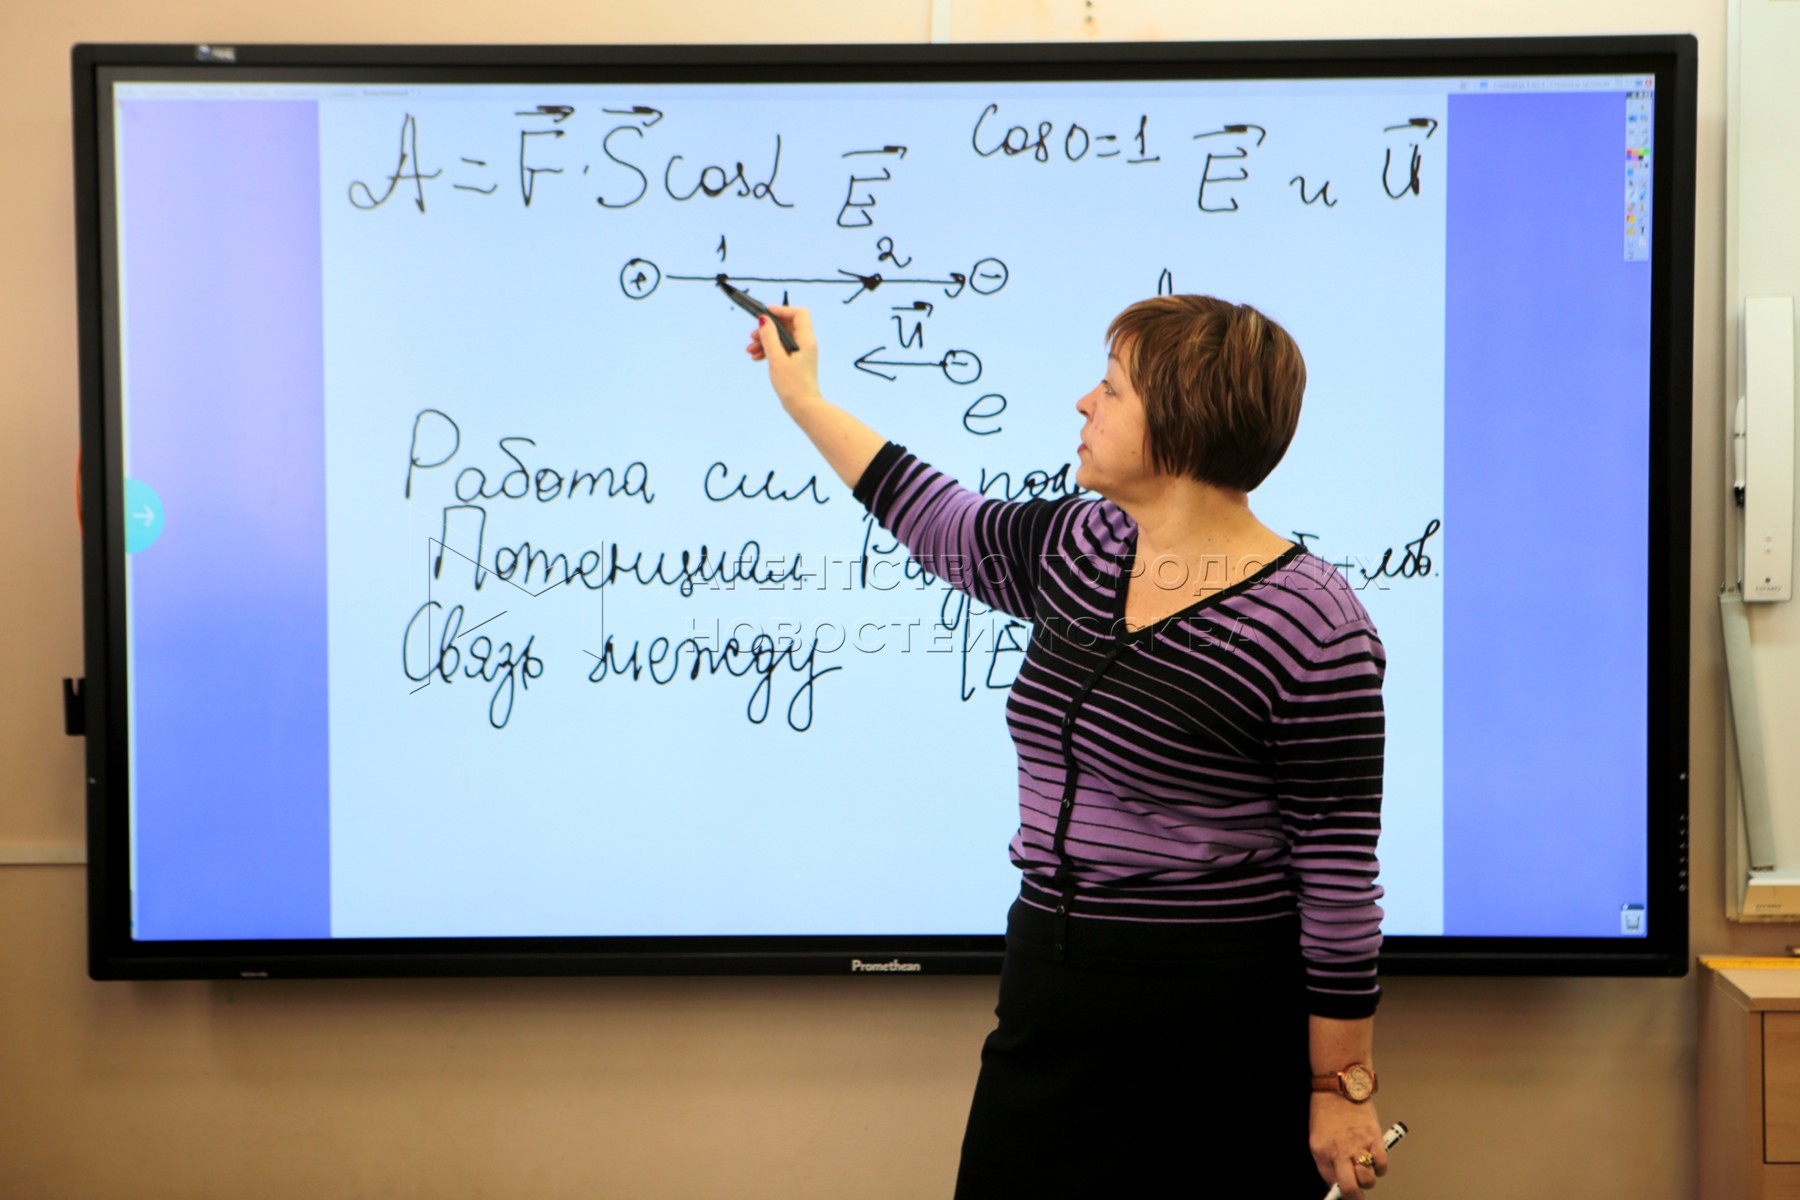 A = F · S cosα E cos0=1 E и u
1 2
+ -
u
-
e
Работа сил
Потенциал
Связь между E
АГЕНТСТВО ГОРОДСКИХ
НОВОСТЕЙ МОСКВА
Promethean